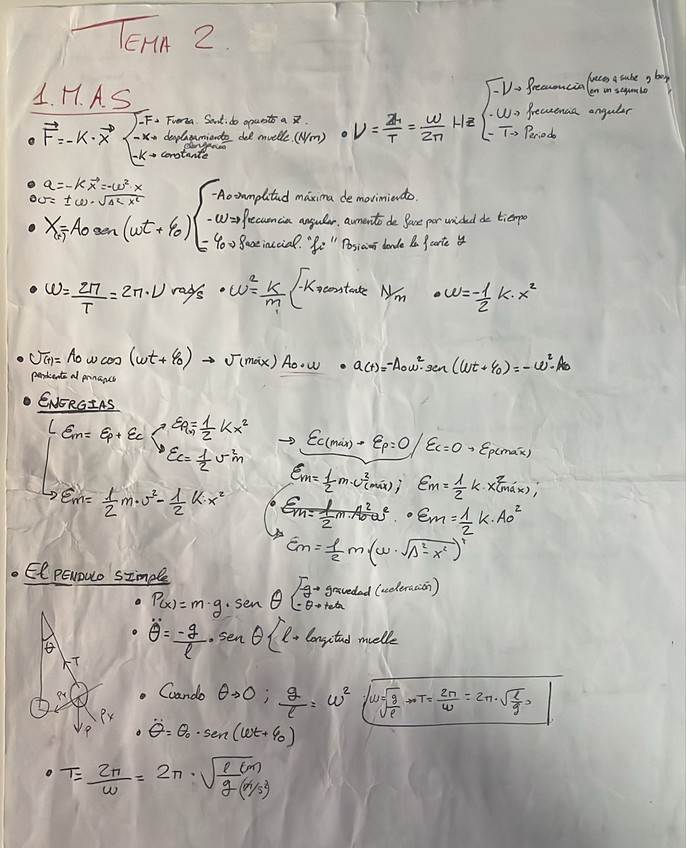 TEMA 2.
1. M.A.S
• F⃗ = -K · x⃗
- F → Fuerza. Sentido opuesto a x⃗.
- x → desplazamiento del muelle. (N/m)
- K → constante
• ν = 2π/T = ω/2π Hz
- ν → frecuencia (veces q sube y baja en un segundo
- ω → frecuencia angular
- T → Periodo
• a = -K x⃗ = -ω² · x
• v = ± ω · √A² - x²
• X(t) = A₀ sen (ωt + φ₀)
- A₀ → amplitud máxima de movimiento.
- ω → frecuencia angular, aumento de fase por unidad de tiempo
- φ₀ → fase inicial. "fi" Posición donde la corte y
• ω = 2π/T = 2π · ν rad/s • ω² = k/m - K → constante N/m • ω = -1/2 K · x²
• v(t) = A₀ ω cos (ωt + φ₀) → v(máx) A₀ · ω • a(t) = -A₀ω² · sen (ωt + φ₀) = -ω² · A₀
• ENERGIAS
Em = Ep + Ec
Ep(x) = 1/2 K x²
Ec = 1/2 v² m
→ Em = 1/2 m · v² - 1/2 K · x²
→ Ec(máx) → Ep = 0 / Ec = 0 → Ep(máx)
Em = 1/2 m · v²(máx) ; Em = 1/2 k · x²(máx) ;
• Em = 1/2 m · A₀² ω². • Em = 1/2 k · A₀²
→ Em = 1/2 m (ω · √A² - x²)²
• El PENDULO SIMPLE
• P(x) = m · g · sen θ
- g → gravedad (aceleración)
- θ → teta
• θ̈ = -g/l · sen θ { l → longitud muelle
θ
T
Px
Py
P
• Cuando θ → 0 ; g/l = ω²
ω = √g/l → T = 2π/ω = 2π · √l/g
• θ̈ = θ₀ · sen (ωt + φ₀)
• T = 2π/ω = 2π · √l (m)/g (m/s²)